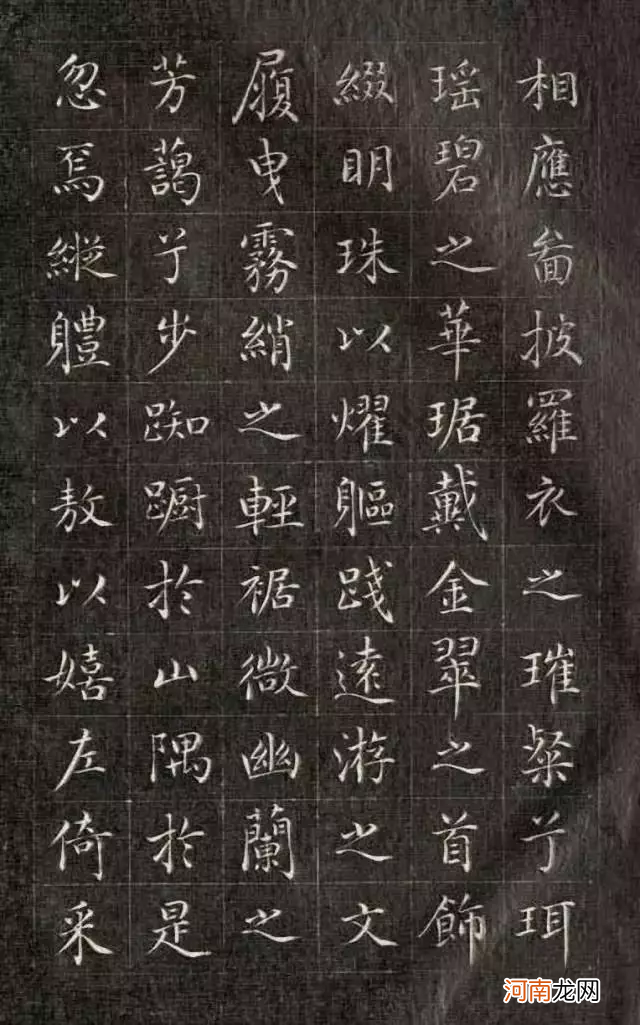 相應啚披羅衣之璀粲兮珥
瑶碧之華琚戴金翠之首飾
綴明珠以燿軀踐遠游之文
履曳霧綃之輕裾微幽蘭之
芳藹兮步踟蹰於山隅於是
忽焉縱軆以敖以嬉左倚采
河南龙网